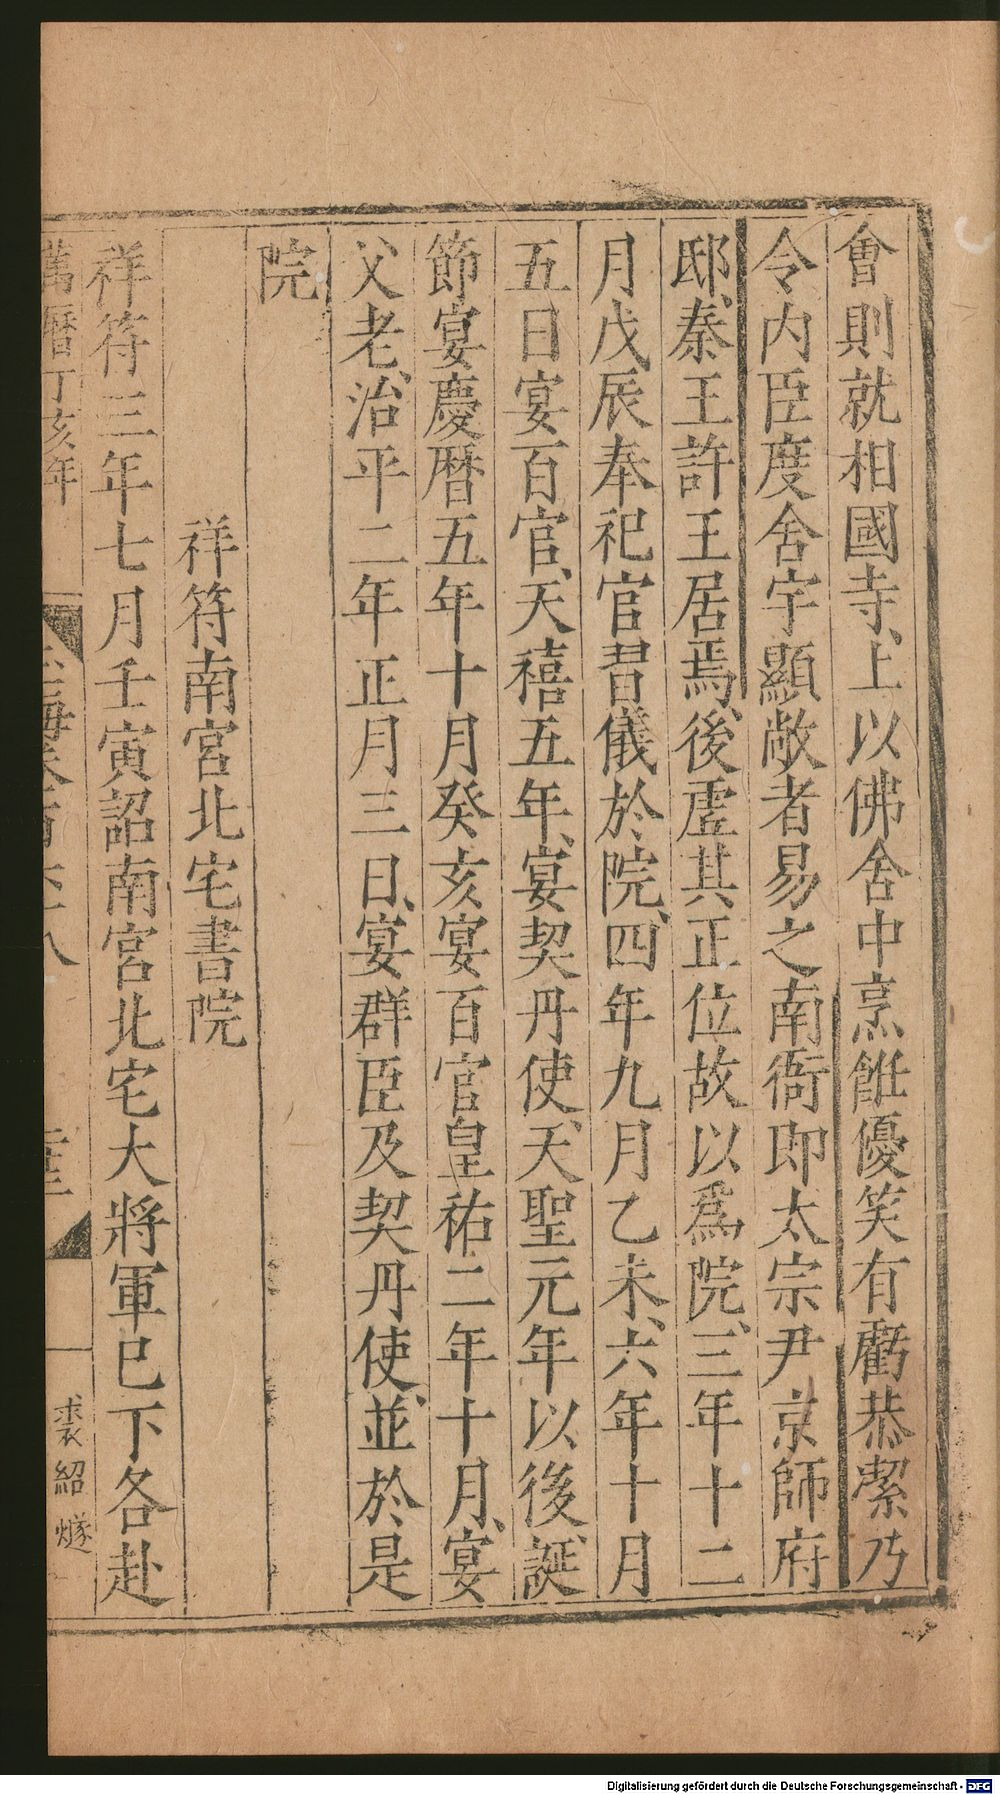 會則就相國寺、上以佛舍中烹飪優笑有虧恭潔乃
令内臣度舍宇顯敞者易之南衙即太宗尹京師府
邸、秦王許王居焉、後虛其正位故以爲院、三年十二
月戊辰奉祀官習儀於院、四年九月乙未、六年十月
五日宴百官、天禧五年、宴契丹使、天聖元年以後、誕
節宴慶暦五年十月癸亥宴百官皇祐二年十月、宴
父老、治平二年正月三日、宴群臣及契丹使、並於是
院
祥符南宮北宅書院
祥符三年七月壬寅詔南宮北宅大將軍已下各赴
萬暦丁亥年
裘紹㷭
Digitalisierung gefördert durch die Deutsche Forschungsgemeinschaft - DFG